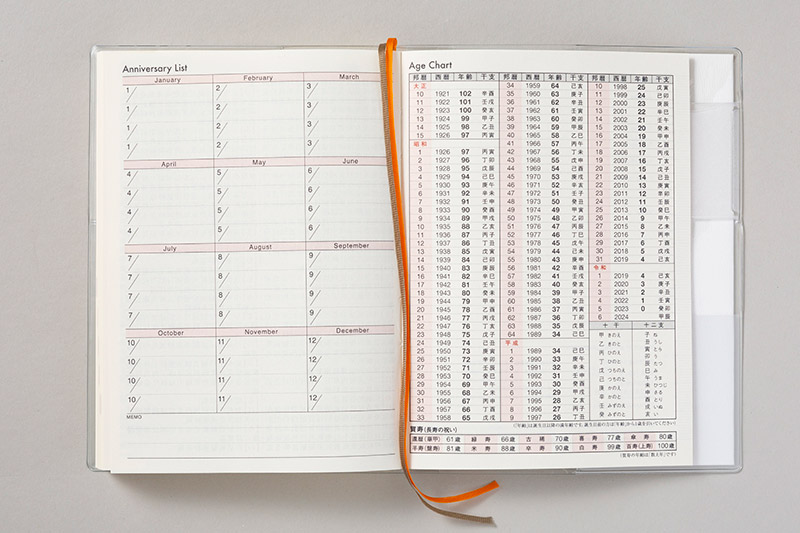 Anniversary List
January February March
1/ 2/ 3/
1/ 2/ 3/
1/ 2/ 3/
1/ 2/ 3/
April May June
4/ 5/ 6/
4/ 5/ 6/
4/ 5/ 6/
4/ 5/ 6/
July August September
7/ 8/ 9/
7/ 8/ 9/
7/ 8/ 9/
7/ 8/ 9/
October November December
10/ 11/ 12/
10/ 11/ 12/
10/ 11/ 12/
10/ 11/ 12/
MEMO
Age Chart
邦暦 西暦 年齢 干支 邦暦 西暦 年齢 干支 邦暦 西暦 年齢 干支
大正
10 1921 102 辛酉
11 1922 101 壬戌
12 1923 100 癸亥
13 1924 99 甲子
14 1925 98 乙丑
15 1926 97 丙寅
昭和
1 1926 97 丙寅
2 1927 96 丁卯
3 1928 95 戊辰
4 1929 94 己巳
5 1930 93 庚午
6 1931 92 辛未
7 1932 91 壬申
8 1933 90 癸酉
9 1934 89 甲戌
10 1935 88 乙亥
11 1936 87 丙子
12 1937 86 丁丑
13 1938 85 戊寅
14 1939 84 己卯
15 1940 83 庚辰
16 1941 82 辛巳
17 1942 81 壬午
18 1943 80 癸未
19 1944 79 甲申
20 1945 78 乙酉
21 1946 77 丙戌
22 1947 76 丁亥
23 1948 75 戊子
24 1949 74 己丑
25 1950 73 庚寅
26 1951 72 辛卯
27 1952 71 壬辰
28 1953 70 癸巳
29 1954 69 甲午
30 1955 68 乙未
31 1956 67 丙申
32 1957 66 丁酉
33 1958 65 戊戌
34 1959 64 己亥
35 1960 63 庚子
36 1961 62 辛丑
37 1962 61 壬寅
38 1963 60 癸卯
39 1964 59 甲辰
40 1965 58 乙巳
41 1966 57 丙午
42 1967 56 丁未
43 1968 55 戊申
44 1969 54 己酉
45 1970 53 庚戌
46 1971 52 辛亥
47 1972 51 壬子
48 1973 50 癸丑
49 1974 49 甲寅
50 1975 48 乙卯
51 1976 47 丙辰
52 1977 46 丁巳
53 1978 45 戊午
54 1979 44 己未
55 1980 43 庚申
56 1981 42 辛酉
57 1982 41 壬戌
58 1983 40 癸亥
59 1984 39 甲子
60 1985 38 乙丑
61 1986 37 丙寅
62 1987 36 丁卯
63 1988 35 戊辰
64 1989 34 己巳
平成
1 1989 34 己巳
2 1990 33 庚午
3 1991 32 辛未
4 1992 31 壬申
5 1993 30 癸酉
6 1994 29 甲戌
7 1995 28 乙亥
8 1996 27 丙子
9 1997 26 丁丑
10 1998 25 戊寅
11 1999 24 己卯
12 2000 23 庚辰
13 2001 22 辛巳
14 2002 21 壬午
15 2003 20 癸未
16 2004 19 甲申
17 2005 18 乙酉
18 2006 17 丙戌
19 2007 16 丁亥
20 2008 15 戊子
21 2009 14 己丑
22 2010 13 庚寅
23 2011 12 辛卯
24 2012 11 壬辰
25 2013 10 癸巳
26 2014 9 甲午
27 2015 8 乙未
28 2016 7 丙申
29 2017 6 丁酉
30 2018 5 戊戌
31 2019 4 己亥
令和
1 2019 4 己亥
2 2020 3 庚子
3 2021 2 辛丑
4 2022 1 壬寅
5 2023 0 癸卯
6 2024 甲辰
十干 十二支
甲 きのえ 子 ね
乙 きのと 丑 うし
丙 ひのえ 寅 とら
丁 ひのと 卯 う
戊 つちのえ 辰 たつ
己 つちのと 巳 み
庚 かのえ 午 うま
辛 かのと 未 ひつじ
壬 みずのえ 申 さる
癸 みずのと 酉 とり
戌 いぬ
亥 い
賀寿(長寿の祝い)
還暦(華甲) 61歳 緑寿 66歳 古稀 70歳 喜寿 77歳 傘寿 80歳
半寿(盤寿) 81歳 米寿 88歳 卒寿 90歳 白寿 99歳 百寿(上寿) 100歳
(賀寿の年齢は「数え年」です)